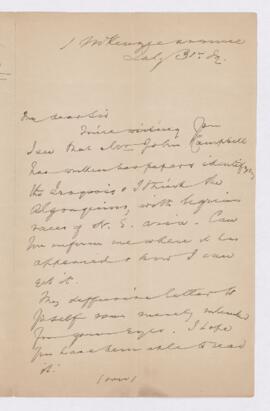 1 McKenzie avenue
July 31st 82
My dear Sir
Since writing you
I see that Mr John Campbell
has written two papers identifying
the Iroquois & I think the
Algonquins, with Siberian
races of N. E. Asia. Can
you inform me where it has
appeared & how I can
get it.
My letter to
yourself was merely intended
for your eyes. I hope
you have been able to read
it.
(over)